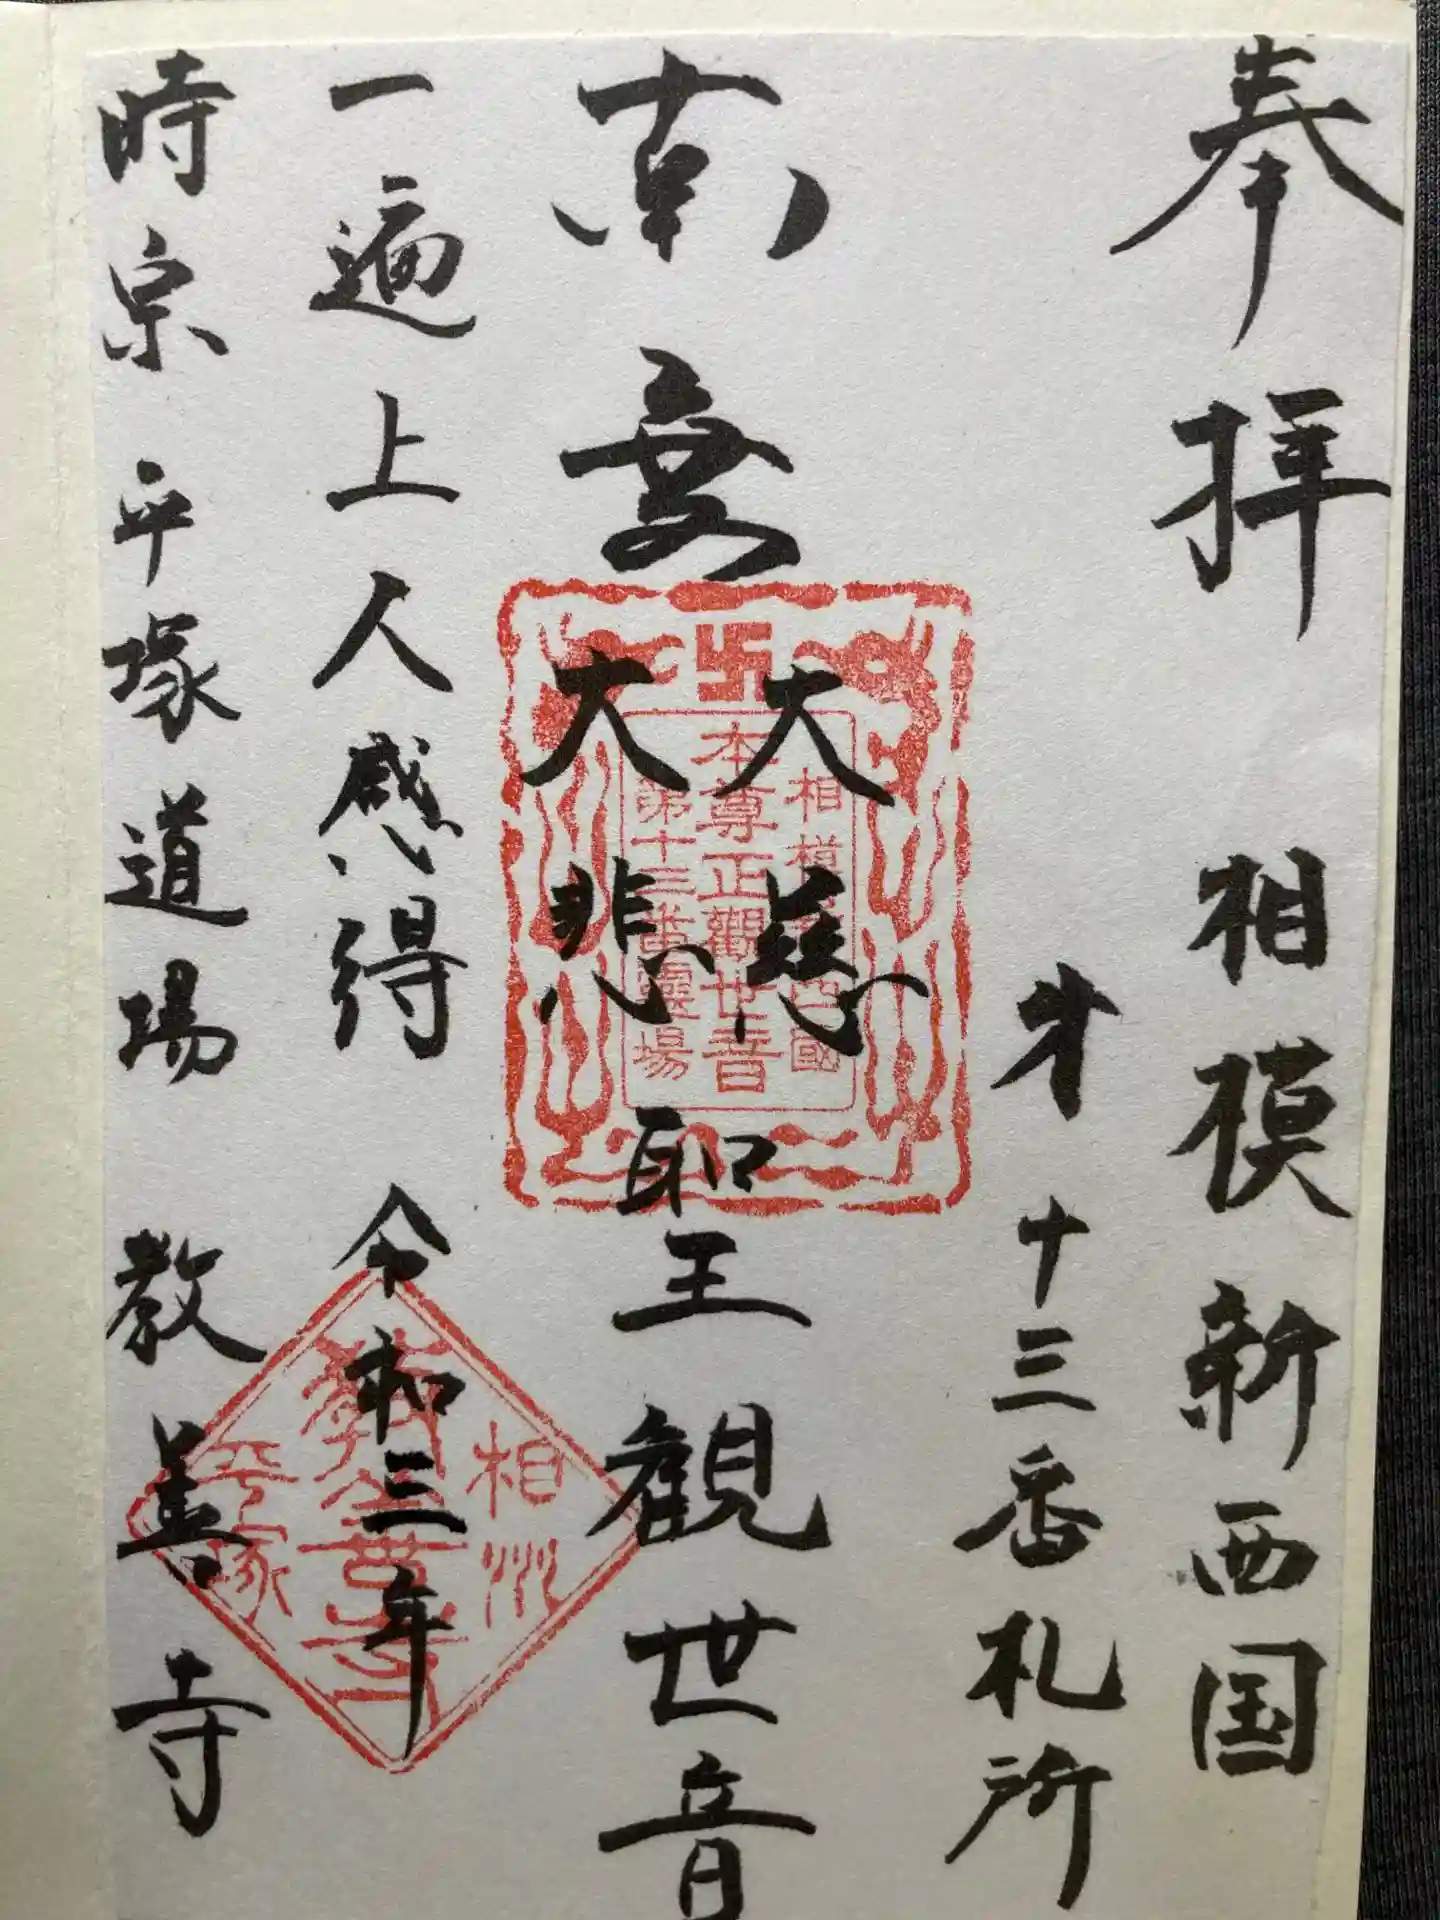 奉拝 相模新西国
才十三番札所
南無
大慈
大悲
聖観世音
一遍上人感得 令和三年
時宗 平塚道場 教善寺
卍
相模新西國
本尊正觀世音
第十三番靈場
相州
教善寺
平塚